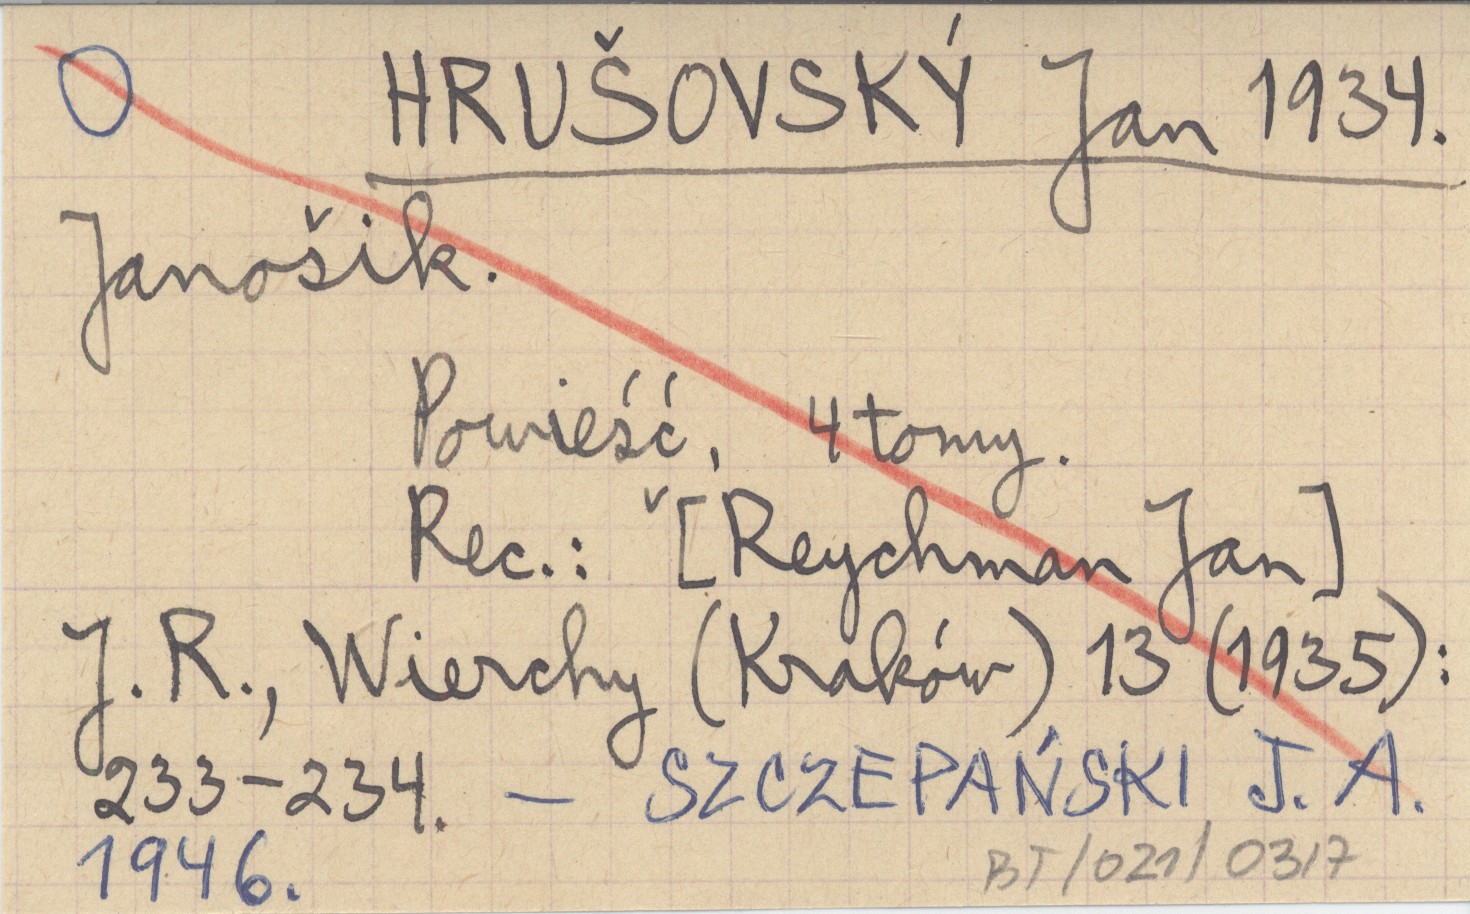 HRUŠOVSKÝ Jan 1934.
Janošik.
Powieść, 4 tomy.
Rec.: [Reychman Jan]
J. R., Wierchy (Kraków) 13 (1935):
233-234. — SZCZEPAŃSKI J. A.
1946.
BT/021/0317